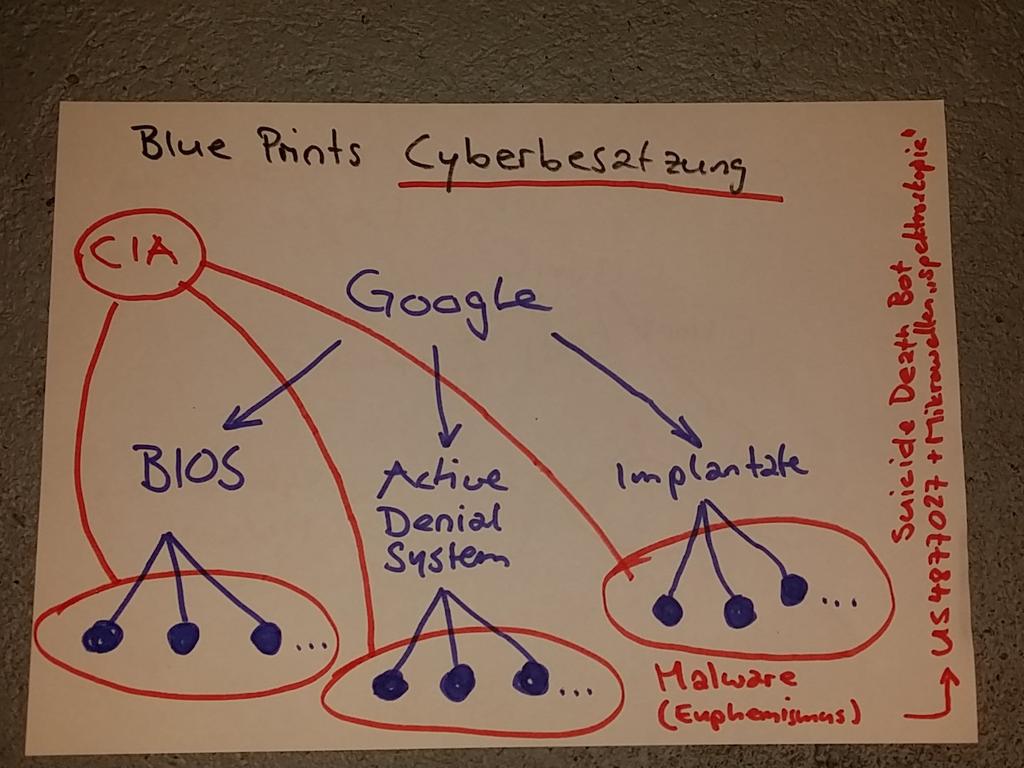 Blue Prints Cyberbesatzung
CIA
Google
BIOS
Active
Denial
System
Implantate
...
...
...
Malware
(Euphemismus)
Suicide Death Bot
US 4877027 + Mikrowellen„spektroskopie"